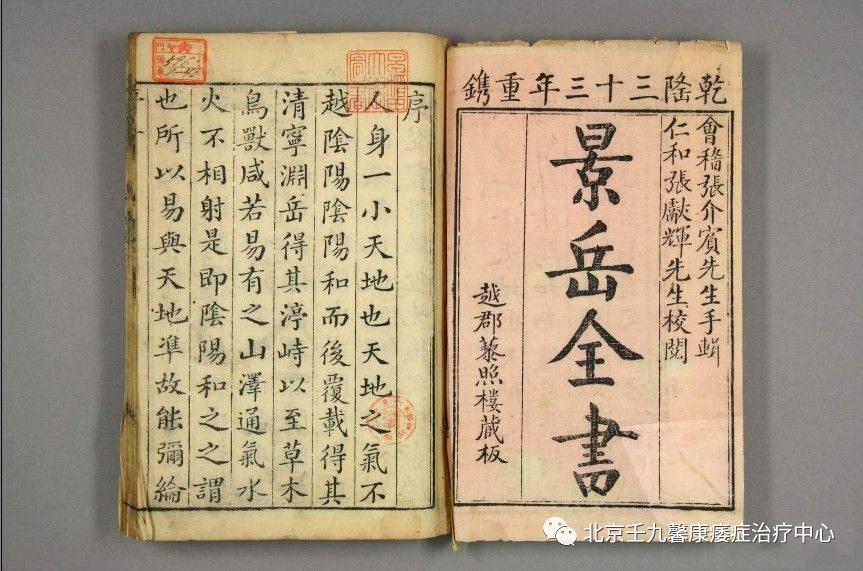 乾隆三十三年重鐫
會稽張介賓先生手輯
仁和張獻輝先生校閱
景岳全書
越郡藜照樓藏板
序
人身一小天地也天地之氣不
越陰陽陰陽和而後覆載得其
清寧淵岳得其渟峙以至草木
鳥獸咸若易有之山澤通氣水
火不相射是即陰陽和之之謂
也所以易與天地準故能彌綸
北京壬九馨康痿症治疗中心